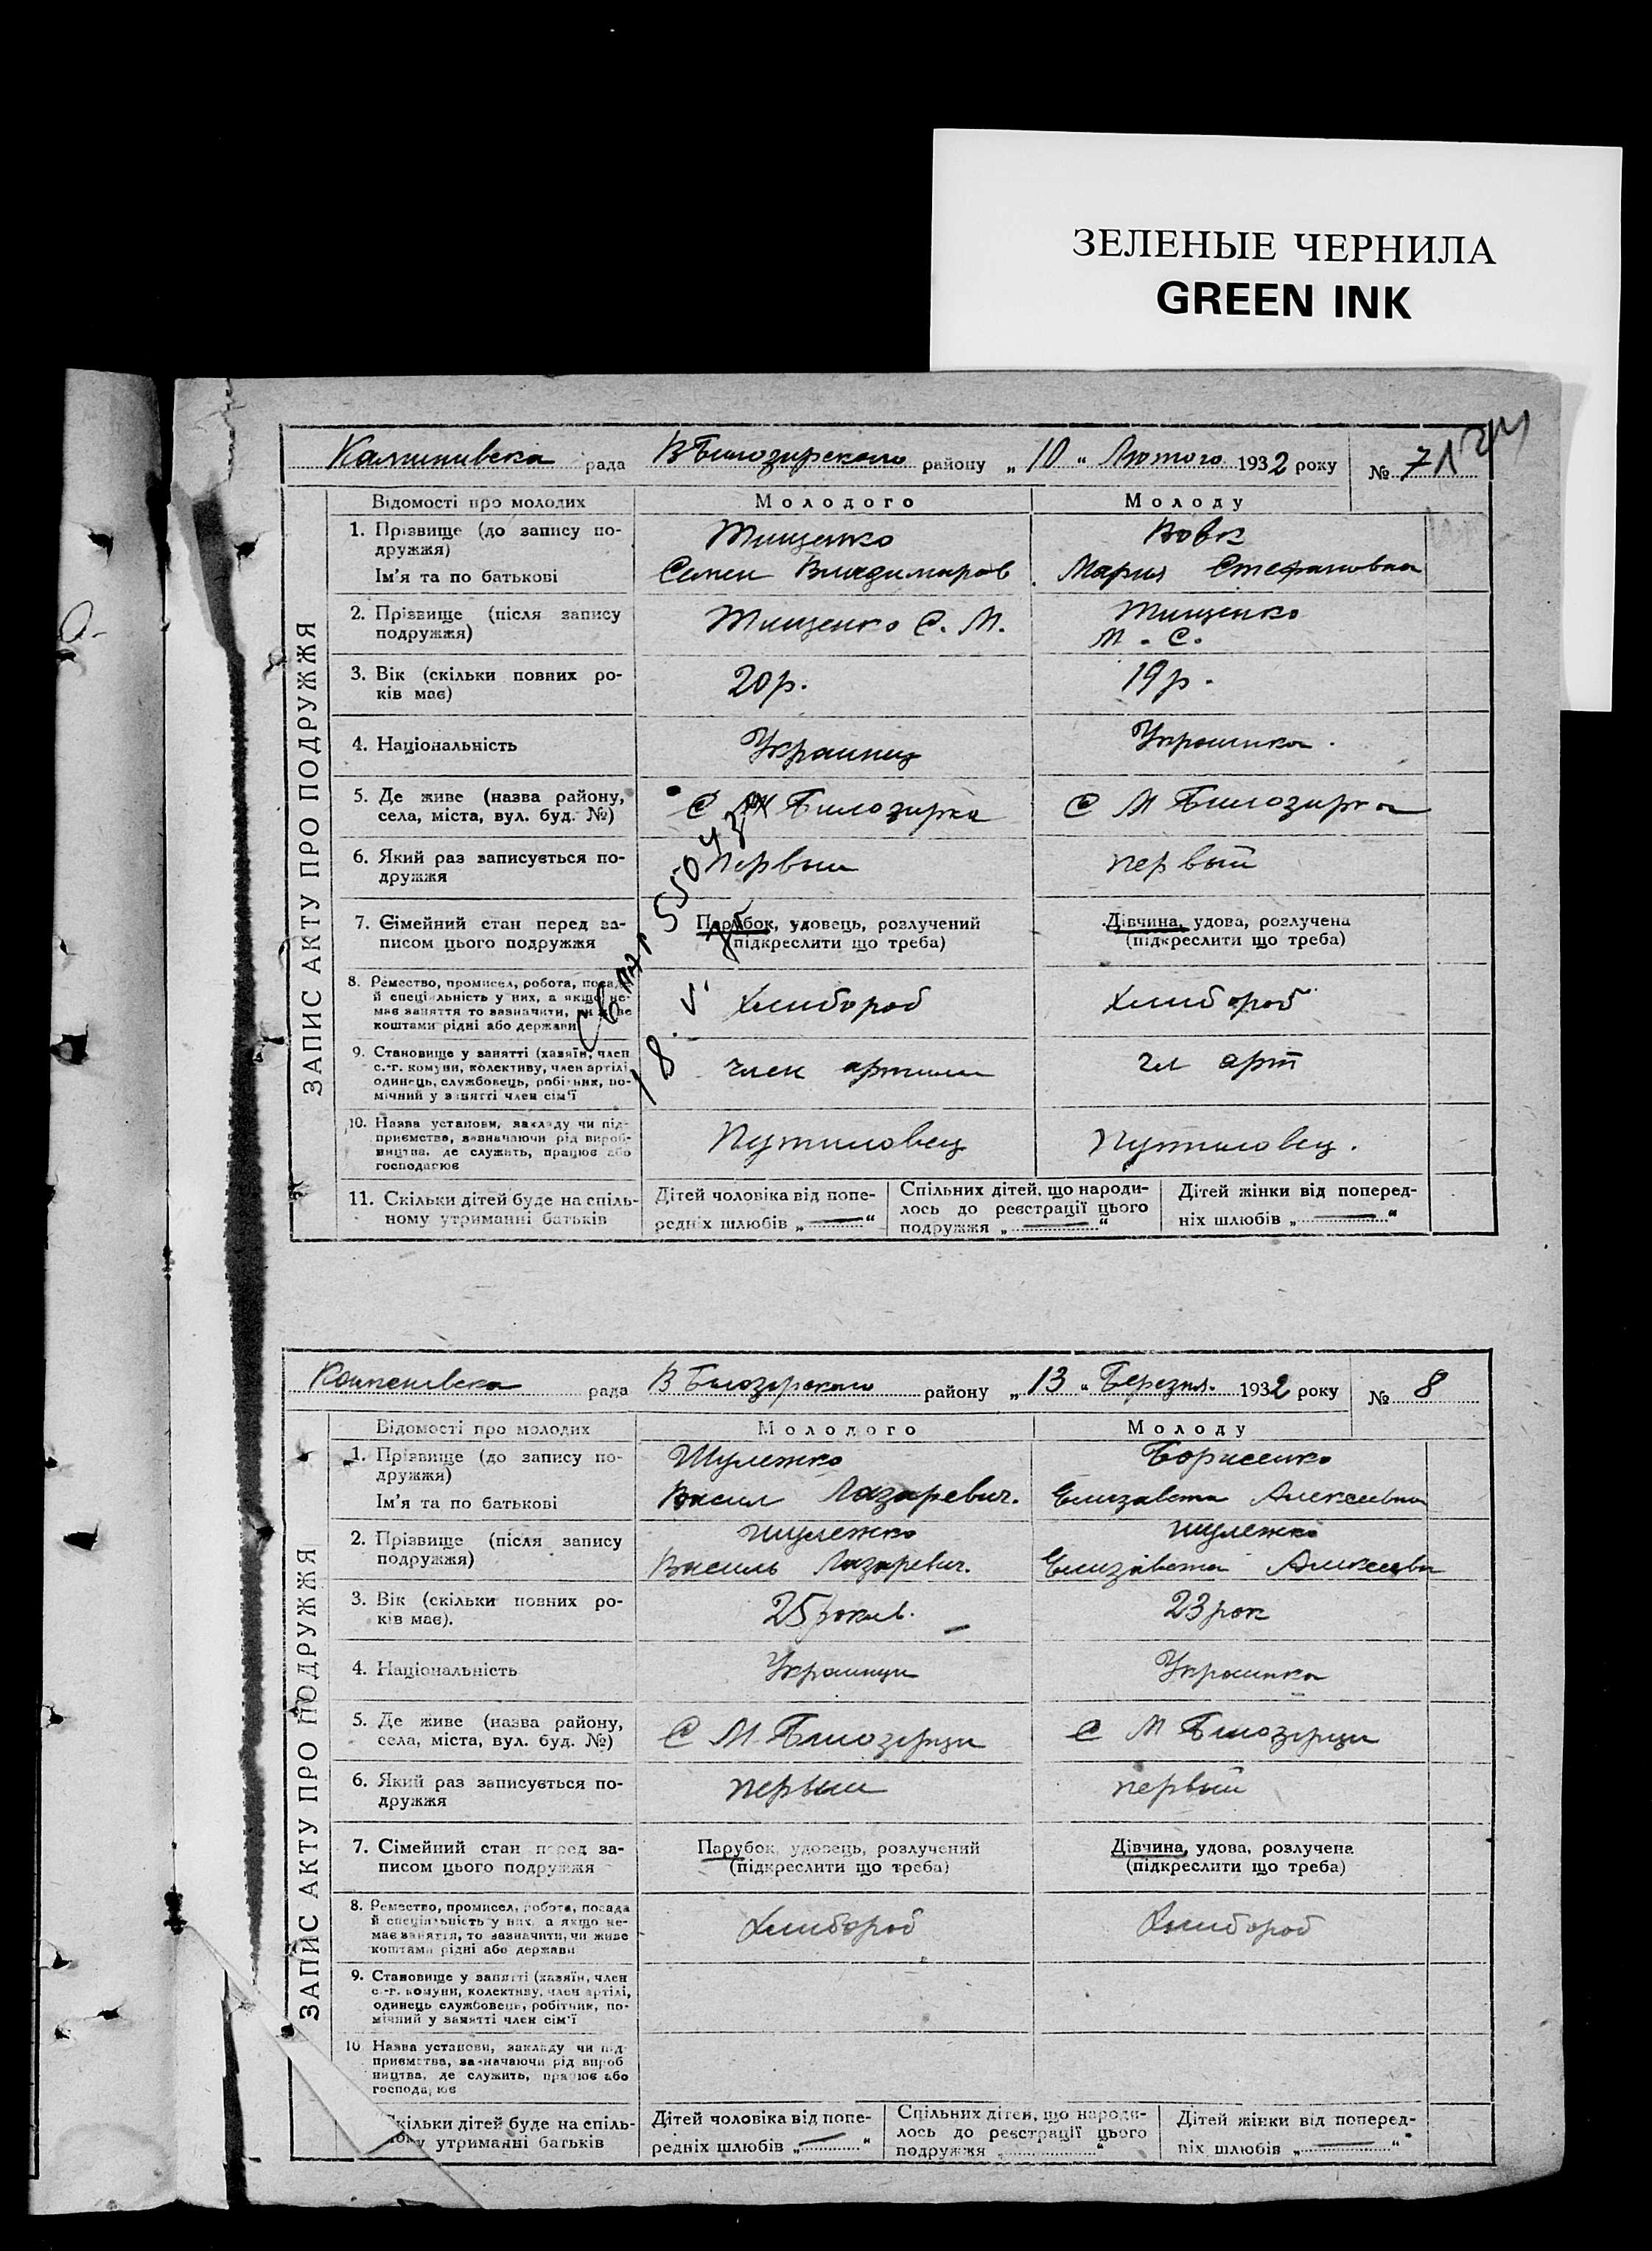 ЗЕЛЕНЫЕ ЧЕРНИЛА
GREEN INK
рада В Билозирского району „ 10 “ Лютого 1932 року № 7
ЗАПИС АКТУ ПРО ПОДРУЖЖЯ
Відомості про молодих Молодого Молоду
1. Прізвище (до запису по-
дружжя)
Тищенко Вовк
Ім'я та по батькові Семен Владимиров Мария Стефановна
2. Прізвище (після запису
подружжя)
Тищенко С. М. Тищенко
М. С.
3. Вік (скільки повних ро-
ків має)
20 р. 19 р.
4. Національність Украинец Украинка.
5. Де живе (назва району,
села, міста, вул. буд. №)
С М Билозирка С М Билозирка
6. Який раз записується по-
дружжя
первый первый
7. Сімейний стан перед за-
писом цього подружжя
Парубок, удовець, розлучений
(підкреслити що треба)
Дівчина, удова, розлучена
(підкреслити що треба)
8. Ремество, промисел, робота, посада
й спеціальність у них, а якщо не-
має заняття то зазначити, чи живе
коштами рідні або держави
Хлибороб Хлибороб
9. Становище у занятті (хазяїн, член
с.-г. комуни, колективу, член артілі,
одинець, службовець, робітник, по-
мічний у занятті член сім'ї
член артили чл арт
10. Назва установи, закладу чи під-
приємства, зазначаючи рід вироб-
ництва, де служить, працює або
господарює
Путиловец Путиловец.
11. Скільки дітей буде на спіль-
ному утриманні батьків
Дітей чоловіка від попе-
редніх шлюбів „ — “
Спільних дітей, що народи-
лось до реєстрації цього
подружжя „ — “
Дітей жінки від поперед-
ніх шлюбів „ — “
рада В Билозирского району „ 13 “ Березня. 1932 року № 8
ЗАПИС АКТУ ПРО ПОДРУЖЖЯ
Відомості про молодих Молодого Молоду
1. Прізвище (до запису по-
дружжя)
Шулежко Борисенко
Ім'я та по батькові Васил Лазаревич. Елизавета Алексеевна
2. Прізвище (після запису
подружжя)
шулежко шулежко
Василь Лазаревич. Елизавета Алексеевн
3. Вік (скільки повних ро-
ків має).
25 рокив. 23 рок
4. Національність Украинци Украинка
5. Де живе (назва району,
села, міста, вул. буд. №)
С М Билозирци С М Билозирци
6. Який раз записується по-
дружжя
первый первый
7. Сімейний стан перед за-
писом цього подружжя
Парубок, удовець, розлучений
(підкреслити що треба)
Дівчина, удова, розлучена
(підкреслити що треба)
8. Ремество, промисел, робота, посада
й спеціальність у них, а якщо не-
має заняття, то зазначити, чи живе
коштами рідні або держави
Хлибороб Хлибороб
9. Становище у занятті (хазяїн, член
с.-г. комуни, колективу, член артілі,
одинець службовець, робітник, по-
мічний у занятті член сім'ї
10 Назва установи, закладу чи під-
приємства, зазначаючи рід вироб
ництва, де служить, працює або
господарює
Скільки дітей буде на спіль-
ному утриманні батьків
Дітей чоловіка від попе-
редніх шлюбів „ — “
Спільних дітей, що народи-
лось до реєстрації цього
подружжя „ “
Дітей жінки від поперед-
ніх шлюбів „ — “